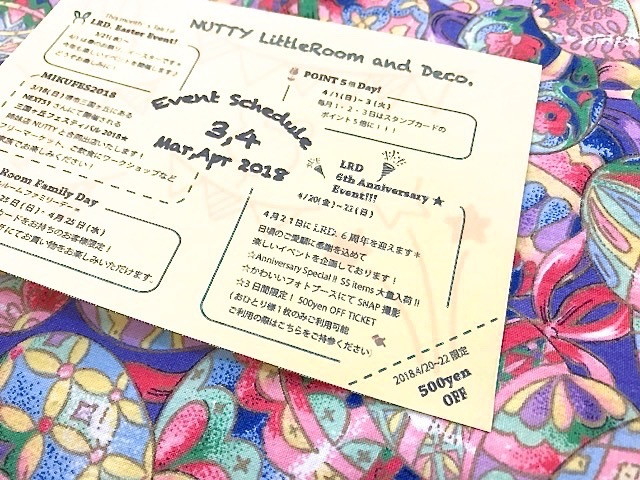 NUTTY LittleRoom and Deco.
This month
LRD. Easter Event!
MIKUFES2018
3/18(日)堺市三国ヶ丘にある
NEXT51さんにて開催される
三国ヶ丘フェスティバル2018★
姉妹店NUTTYと合同出店いたします!
フリーマーケット、ご飲食にワークショップなど
Event Schedule
3,4
Mar,Apr 2018
POINT 5倍Day!
4/1(日)~3(火)
毎月1・2・3日はスタンプカードの
ポイント5倍に!!!
LRD
6th Anniversary ★
Event!!!
4/20(金)~22(日)
4月21日にLRD. 6周年を迎えます*
日頃のご愛顧に感謝を込めて
楽しいイベントを企画しております!
☆Anniversary Special!! SS items 大量入荷!!
☆かわいいフォトブースにてSNAP撮影
☆3日間限定! 500yen OFF TICKET
(おひとり様1枚のみご利用可能
ご利用の際はこちらをご持参ください
Room Family Day
ルームファミリーデー*
25日(日)・4月25日(水)
カードをお持ちのお客様限定!
にてお買い物をお楽しみいただけます。
2018.4/20~22 限定
500yen
OFF